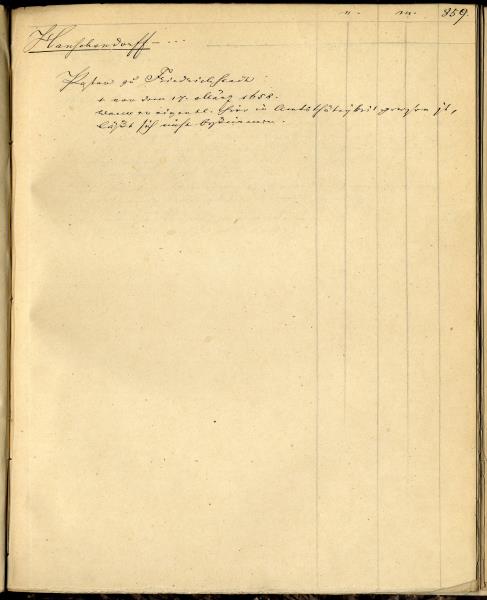 n. m. 859.
Hanschendorff – ...
Pastor zu Friedrichstadt
† vor dem 17. März 1658.
wann er eigentl. hier in Amtsthätigkeit gewesen ist,
läßt sich nicht bestimmen.